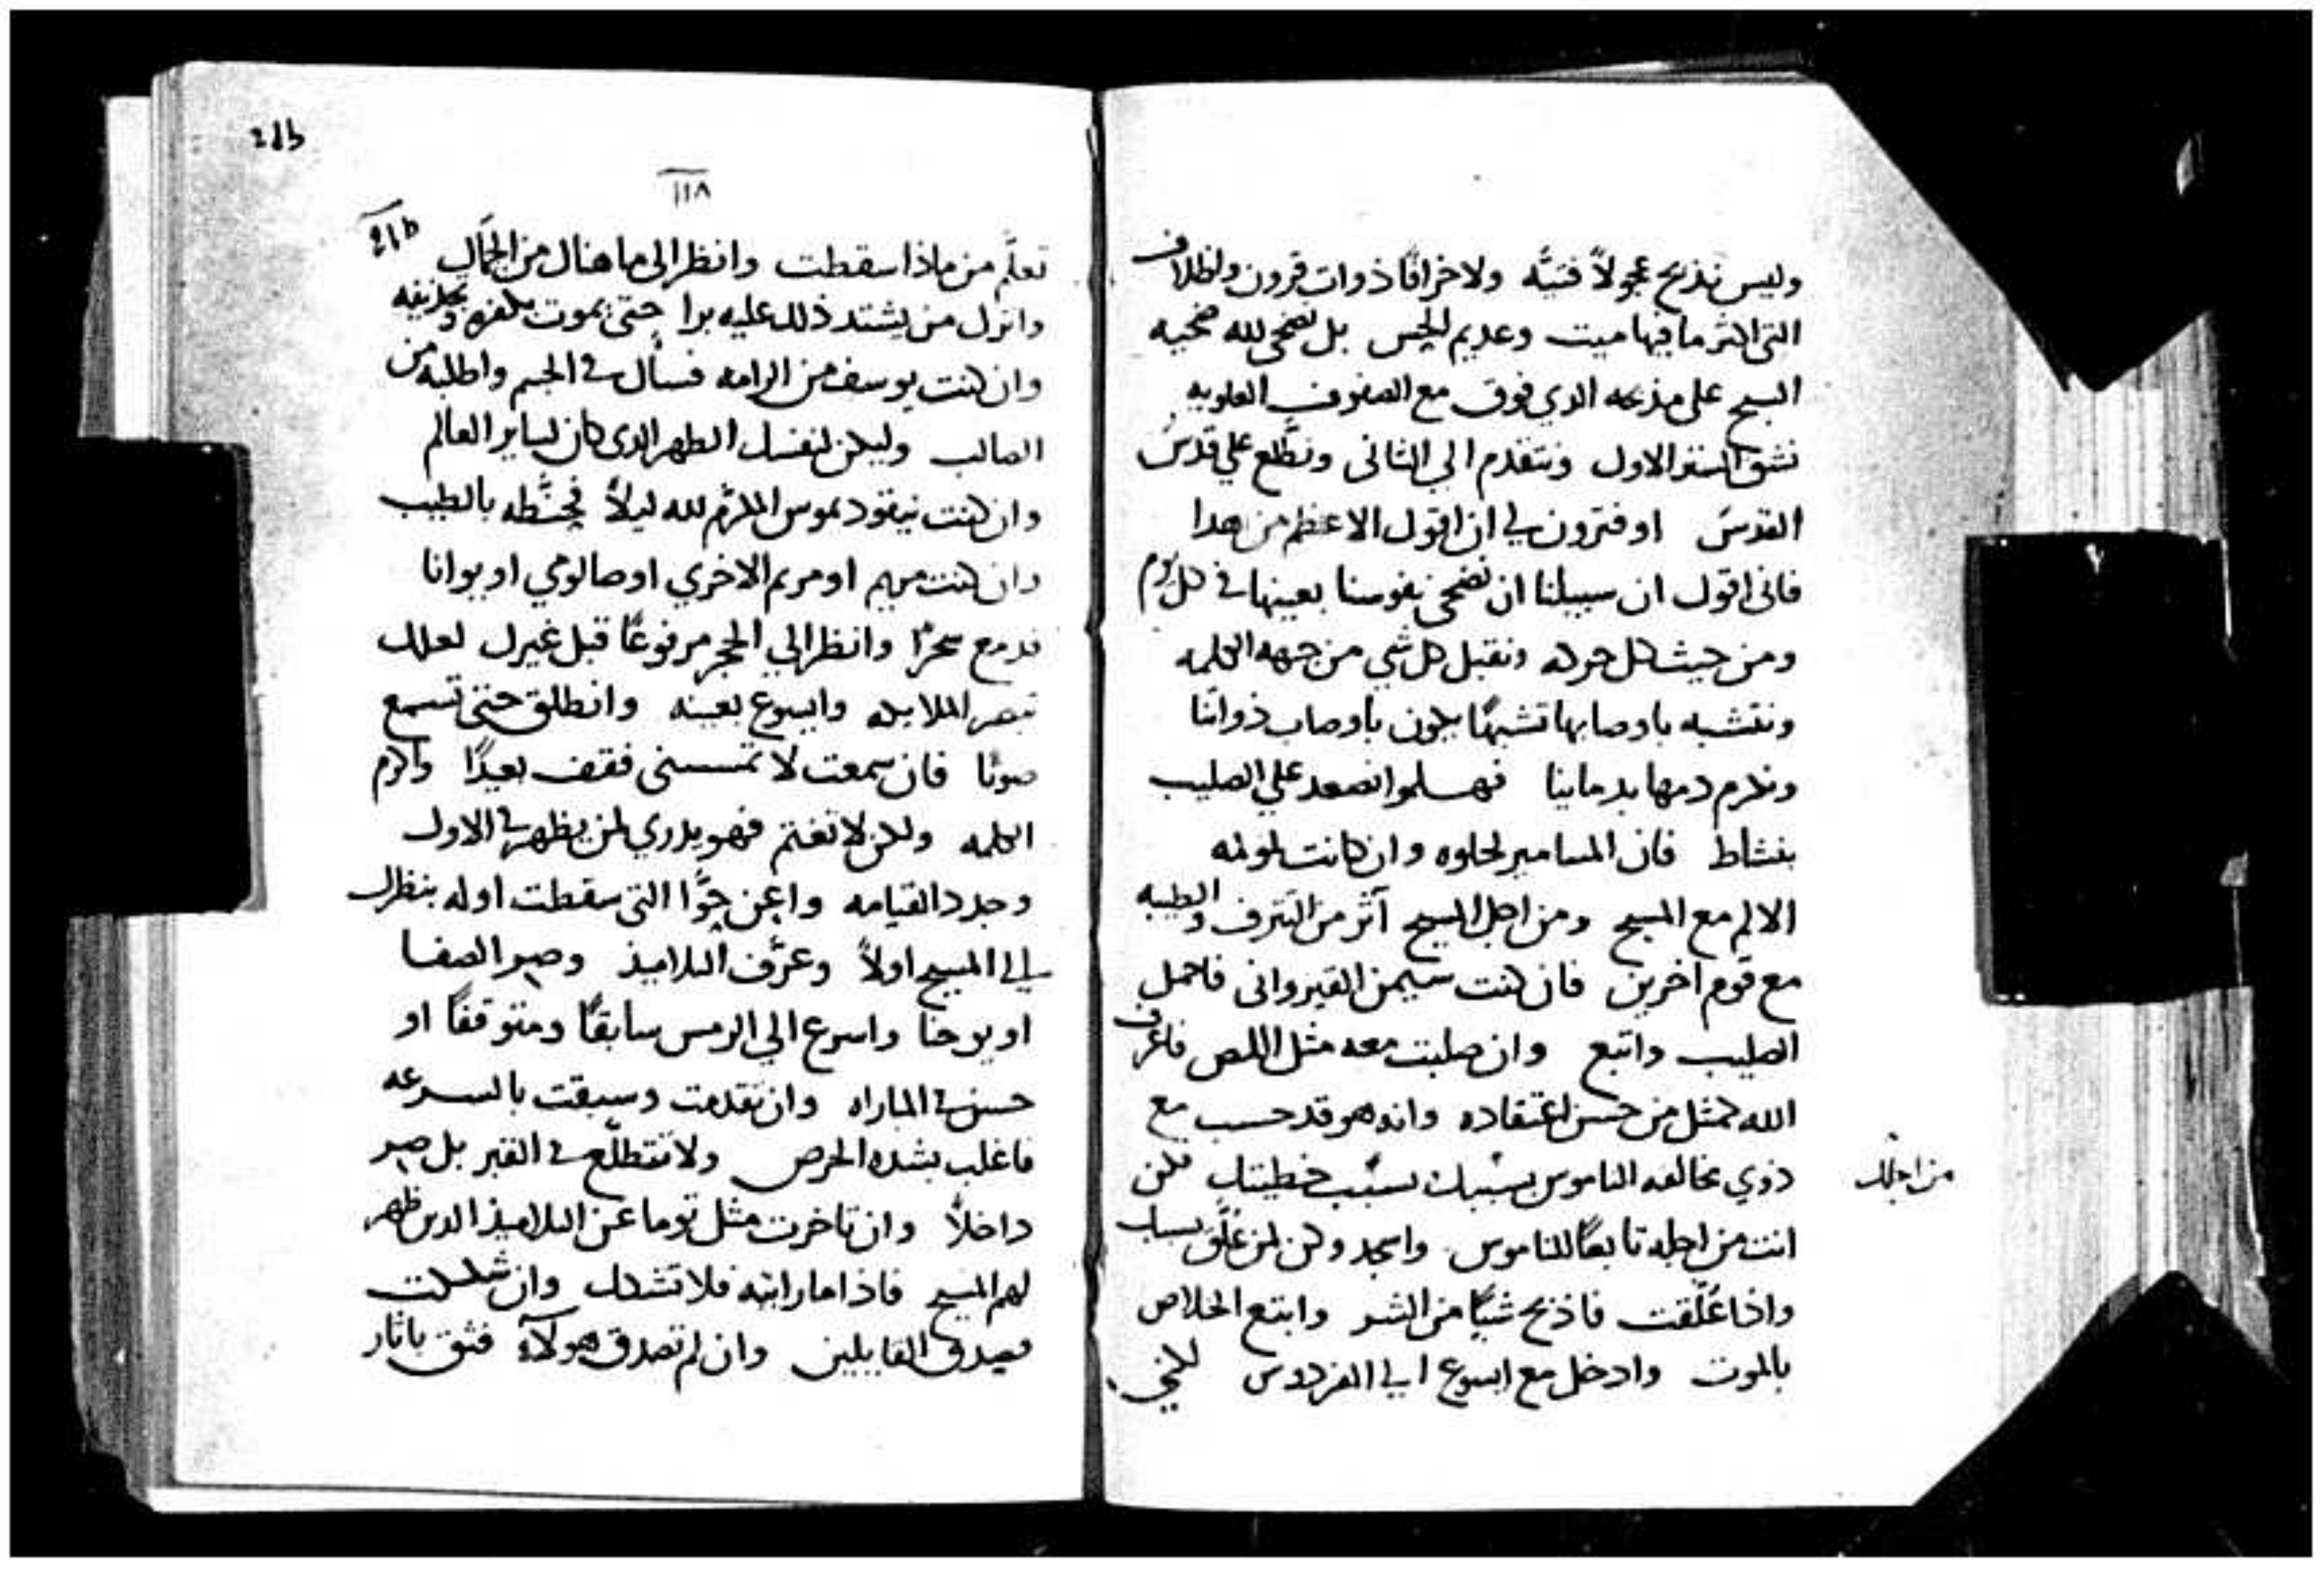 وليس نذبح عجولاً فتيَّه ولا خرافًا ذوات قرون واظلاف
التى اكثر ما فيها ميت وعديم الحس بل نضحى لله ضحيه
السبح على مذبحه الدي فوق مع الصفوف العلويه
نشق الستر الاول ونتقدم الي الثانى ونطَّلع علي قدس
القدس او فترون لي ان اقول الاعظم من هدا
فانى اقول ان سبيلنا ان نضحى نفوسنا بعينها في كل يوم
ومن حيث كل حركه ونقبل كل شي من جهه الكلمه
ونتشبه باوصابها تشبهًا يكون باوصاب ذواتنا
ونكرم دمها بدماينا فهلموا نصعد علي الصليب
بنشاط فان المسامير لحلوه وان كانت لمولمه
الالم مع المسيح ومن اجل المسيح آثر من الترف والطيبه
مع قوم اخرين فان كنت سيمن القيروانى فاحمل
الصليب واتبع وان صلبت معه مثل اللص فاعرف
الله كمثل من حسن اعتقاده وانه هو قد حسب مع
ذوي مخالفه الناموس بسببك بسبب خطيتك فكن
من اجلك
انت من اجله تابعًا للناموس واسجد وكن لمن عُلّق بسببك
واذا عُلّقت فاذبح شيًا من الشر وابتع الخلاص
بالموت وادخل مع ايسوع الي الفردوس لكى
218
١١٨
تعلَّم من ماذا سقطت وانظر الى ما هناك من الجمال
واترك من يشتد ذلك عليه برا حتى يموت بكفره وتجديفه
وان كنت يوسف من الرامه فسال في الجسم واطلبه من
الصالب وليكن لنفسك الطهر الدى كان لساير العالم
وان كنت نيقوديموس المكرّم لله ليلاً فحنّطه بالطيب
وان كنت مريم او مريم الاخري او صالومي او يوانا
فدمع سحرًا وانظر الي الحجر مرفوعًا قبل غيرك لعلك
تبصر الملايكه وايسوع بعينه وانطلق حتى تسمع
صوتًا فان سمعت لا تمسسنى فقف بعيدًا واكرم
الكلمه ولكن لا تغتم فهو يدري لمن يظهر في الاول
وجدد القيامه واعن حوَّا التى سقطت اوله بنظرك
الي المسيح اولاً وعرَّف التلاميذ وصر الصفا
او يوحنا واسرع الي الرمس سابقًا ومتوقفًا او
حسن في المباراه وان تقدمت وسبقت بالسرعه
فاغلب بشده الحرص ولا تتطلَّع في القبر بل صر
داخلاً وان تاخرت مثل توما عن التلاميذ الدين ظهر
لهم المسيح فاذا ما رايته فلا تشكك وان شككت
فصدق القايلين وان لم تصدق هولآء فثق باثار